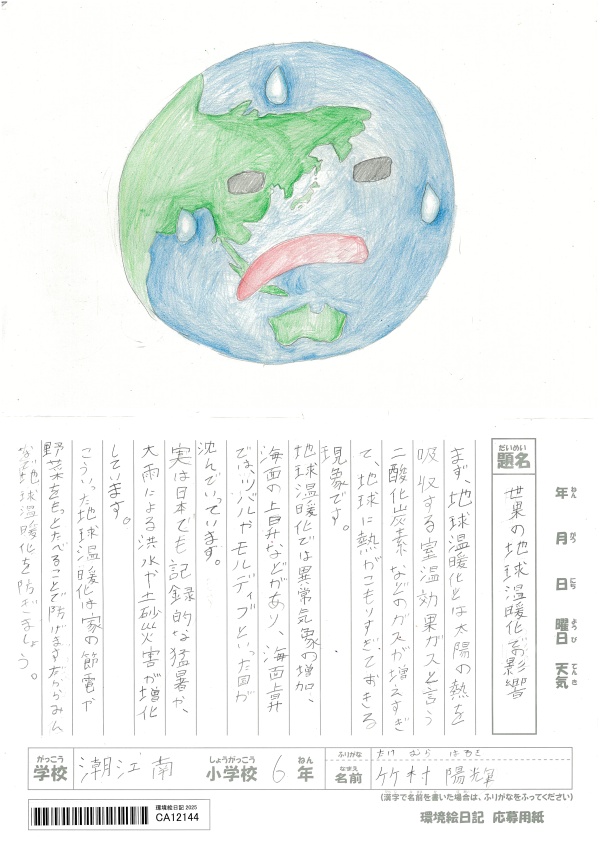 だいめい
題名
世界の地球温暖化での影響
年 ねん
月 がつ
日 にち
曜日 ようび
天気 てんき
まず、地球温暖化とは太陽の熱を
吸収する室温効果ガスと言う
二酸化炭素などのガスが増えすぎ
て、地球に熱がこもりすぎ、ておきる
現象です。
地球温暖化では異常気象の増加、
海面の上昇などがあり、海面上昇
では、ツバルやモルディブといった国が
沈んでいっています。
実は日本でも記録的な猛暑や、
大雨による洪水や土砂災害が増化
しています。
こういった地球温暖化は家の節電や
野菜をもっとたべることで防げますだからみん
なで地球温暖化を防ぎましょう。
がっこう しょうがっこう ねん
学校 潮江南 小学校 6 年
ふりがな たけ むら はるき
なまえ
名前 竹村 陽輝
(漢字で名前を書いた場合は、ふりがなをふってください)
環境絵日記 2025
CA12144
環境絵日記 応募用紙